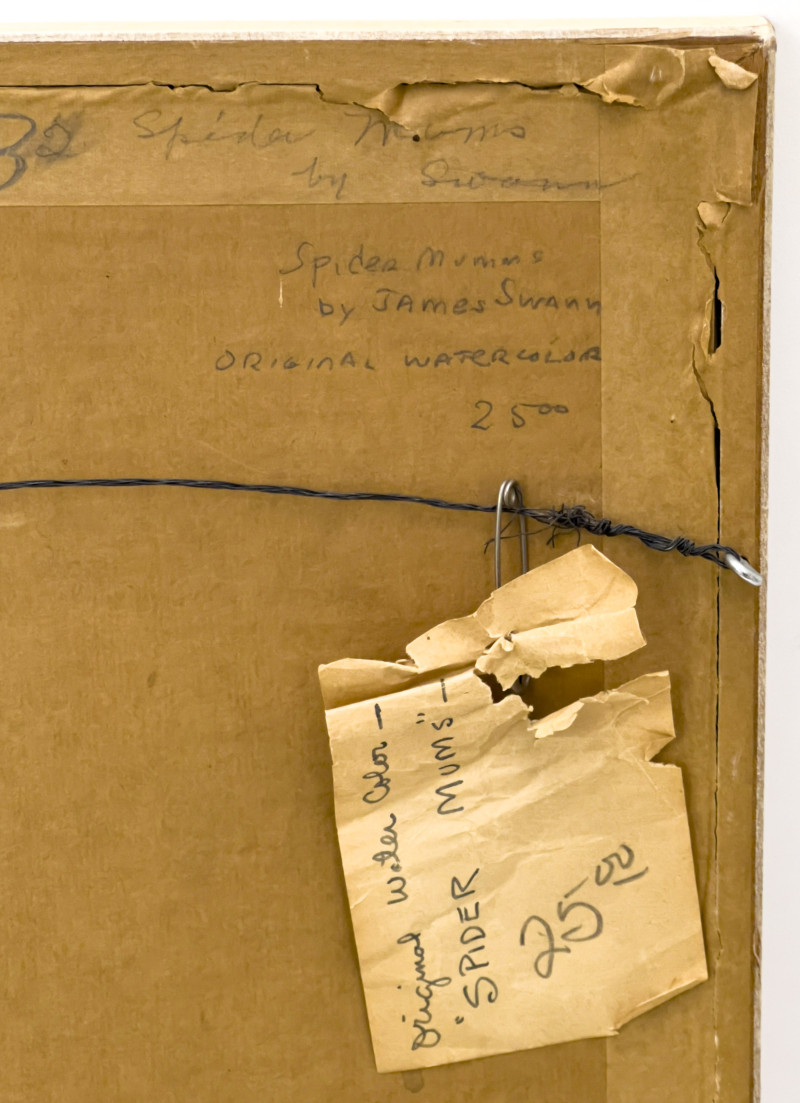 32 Spider Mums
by Swann
Spider Mumms
by JAMES SWANN
ORIGINAL WATERCOLOR
25 00
Original Water Color —
"SPIDER MUMS" —
25 00